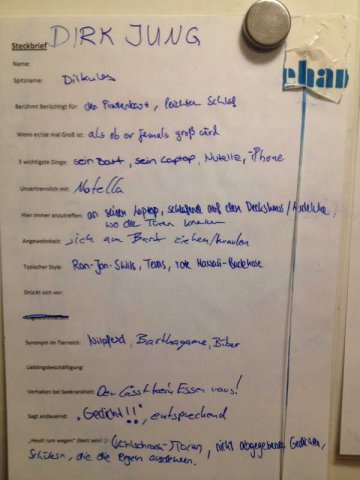 Steckbrief DIRK JUNG
Name:
Spitzname: Dirkules
Berühmt Berüchtigt für: den Piratenbart, leichten Schlaf
Wenn er/sie mal Groß ist: als ob er jemals groß wird
3 wichtigste Dinge: sein Bart, sein Laptop, Nutella, iPhone
Unzertrennlich mit: Nutella
Hier immer anzutreffen: an seinem Laptop, schlafend auf dem Deckshaus /
wo die Türen knallen
Angewohnheit: sich am Bart ziehen/kraulen
Typischer Style: Ron-Jon-Shirts, Tevas, rote Hawaii-Badehose
Drückt sich vor:
Synonym im Tierreich: Nilpferd, Bartagame, Biber
Lieblingsbeschäftigung:
Verhalten bei Seekrankheit: Der lässt kein Essen raus!
Sagt andauernd: "Gedicht!!", entsprechend
"Heult rum wegen" (Nett sein) : Kühlschrank-Türen, nicht abgegebenen Gedichten,
Schülern, die die Regeln ausdehnen.
ehan